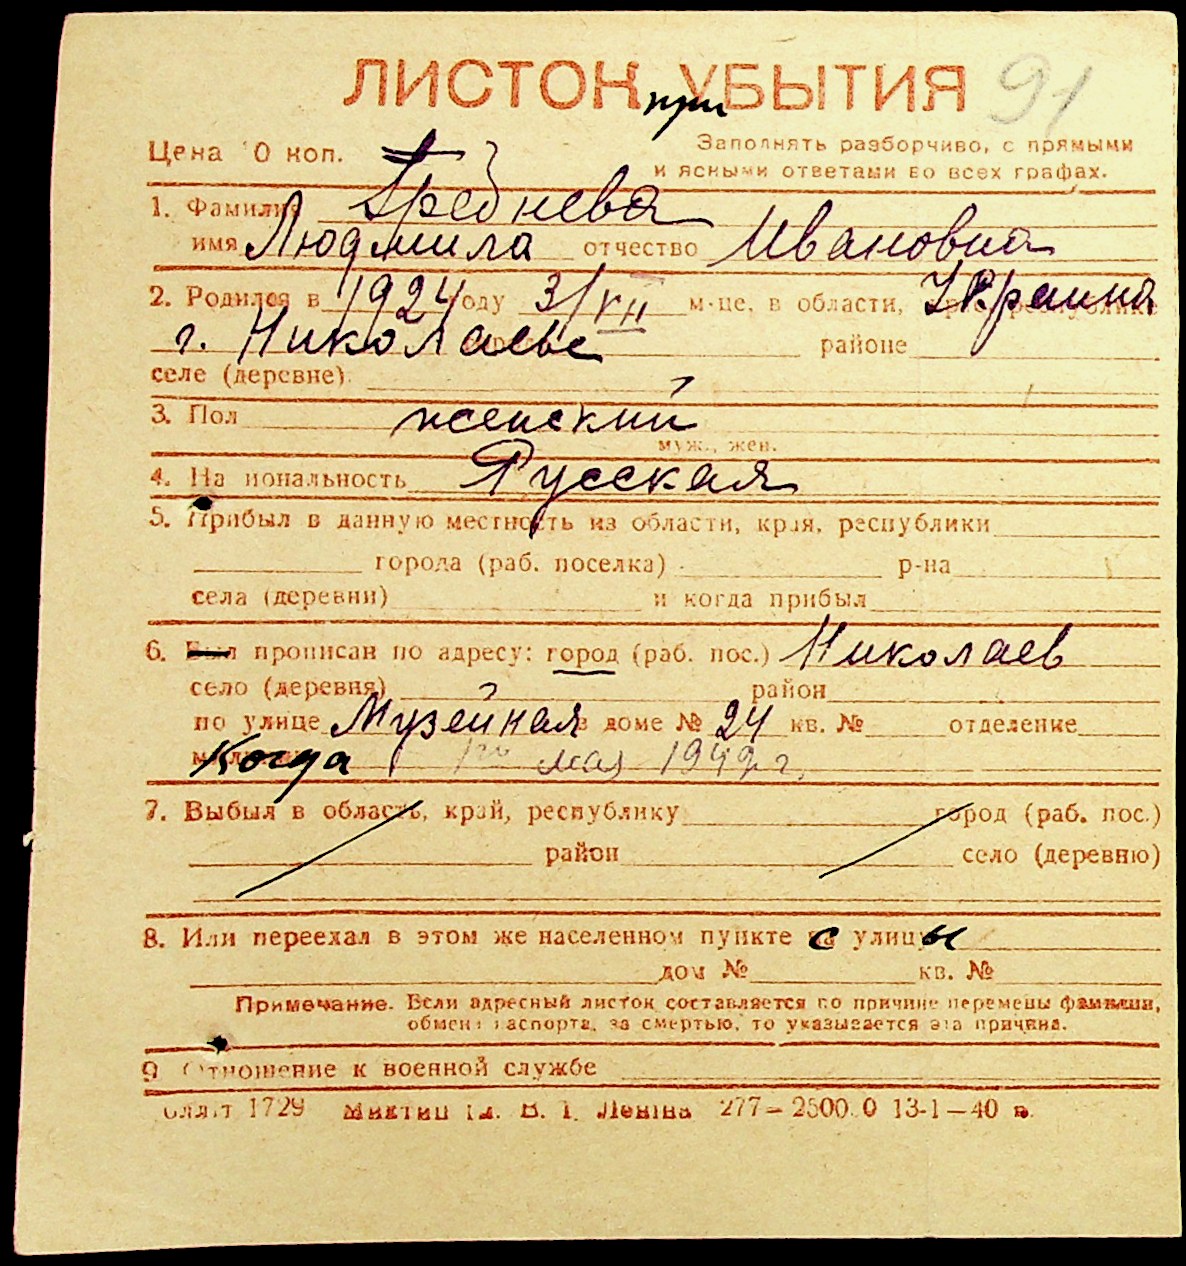 ЛИСТОК при УБЫТИЯ 91
Цена 10 коп.
Заполнять разборчиво, с прямыми
и ясными ответами во всех графах.
1. Фамилия Среднева
имя Людмила отчество Ивановна
2. Родился в 1924 году 31/VII м-це, в области, Украина
г. Николаеве районе
селе (деревне)
3. Пол женский
муж., жен.
4. Национальность Русская
5. Прибыл в данную местность из области, края, республики
города (раб. поселка) р-на
села (деревни) и когда прибыл
6. Был прописан по адресу: город (раб. пос.) Николаев
село (деревня) район
по улице Музейная в доме № 24 кв. № отделение
Когда мая 1942 г.
7. Выбыл в область, край, республику город (раб. пос.)
район село (деревню)
8. Или переехал в этом же населенном пункте с улицы
дом № кв. №
Примечание. Если адресный листок составляется по причине перемены фамилии,
обмена паспорта, за смертью, то указывается эта причина.
9. Отношение к военной службе
1729 В. І. Леніна 277— 13-1—40 в.